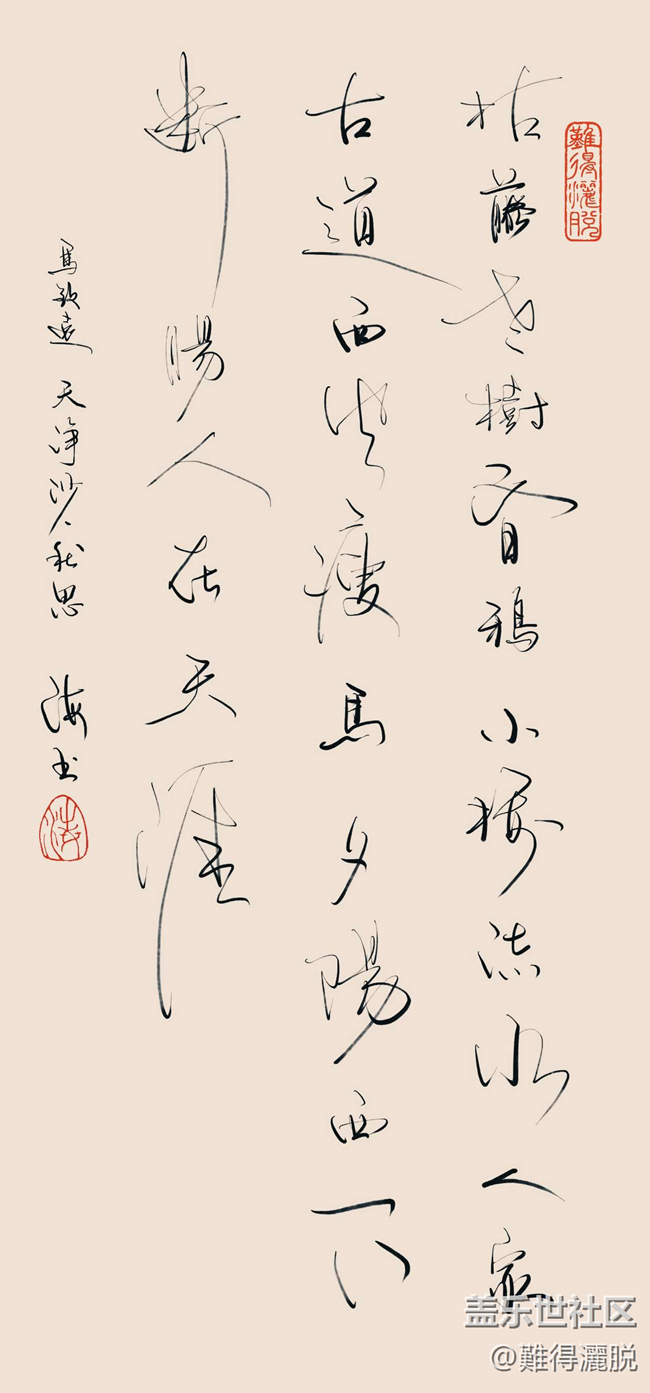 難得灑脫
枯藤老樹昏鴉小橋流水人家
古道西風瘦馬夕陽西下
断腸人在天涯
馬致遠 天淨沙、秋思 海书
海
盖乐世社区
@難得灑脱